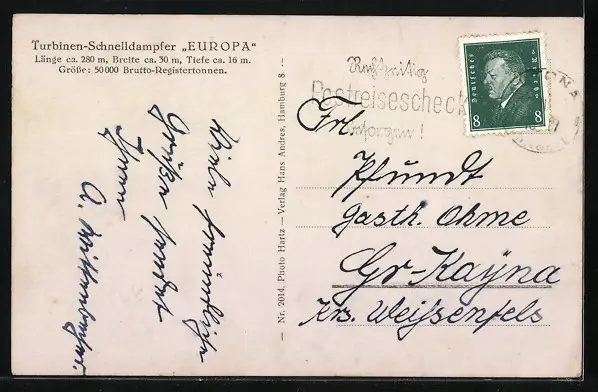 Turbinen-Schnelldampfer „EUROPA“
Länge ca. 280 m, Breite ca. 30 m, Tiefe ca. 16 m.
Größe: 50000 Brutto-Registertonnen.
Viele freundliche
Grüße sendet
Ihnen
A.
Nr. 2014, Photo Hartz — Verlag Hans Andres, Hamburg 8
Rechtzeitig
Postreisescheck
besorgen!
Deutsches Reich
8 8
Frl.
Pfundt
Gasth. Ohme
Gr-Kayna
Krs. Weissenfels